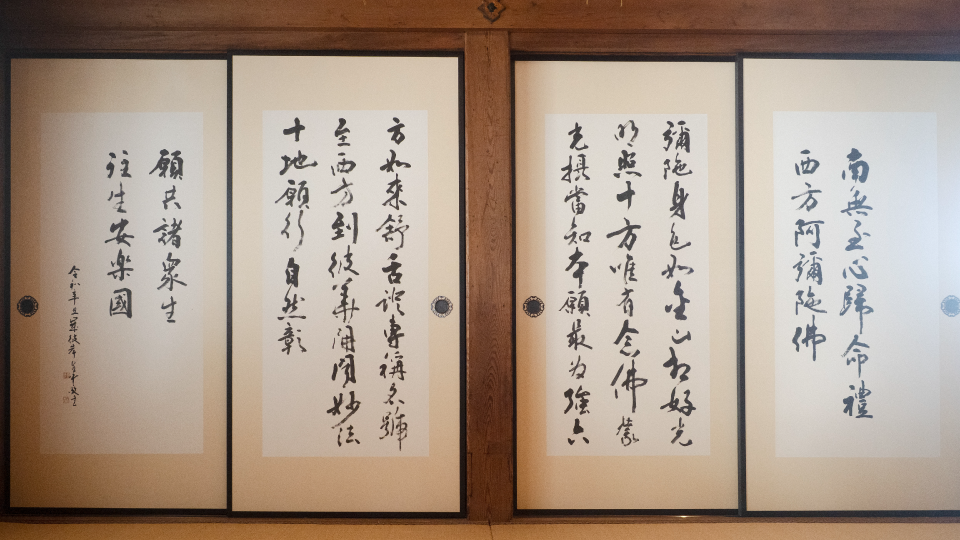 南無至心歸命禮
西方阿彌陀佛
彌陀身色如金山相好光
明照十方唯有念佛蒙
光攝當知本願最為強六
方如來舒舌證專稱名號
至西方到彼華開聞妙法
十地願行自然彰
願共諸衆生
往生安楽國
令和